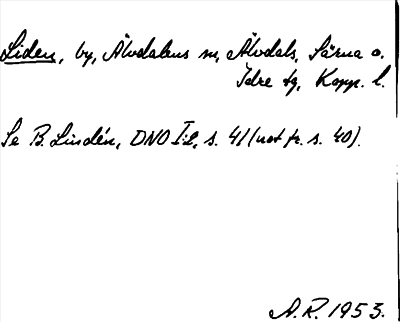 Liden, by, Älvdalens sn, Älvdals, Särna o.
Idre tg, Kopp. l.
Se B. Lindén, DNO I:2, s. 41 (not fr. s. 40).
A.R. 1953.